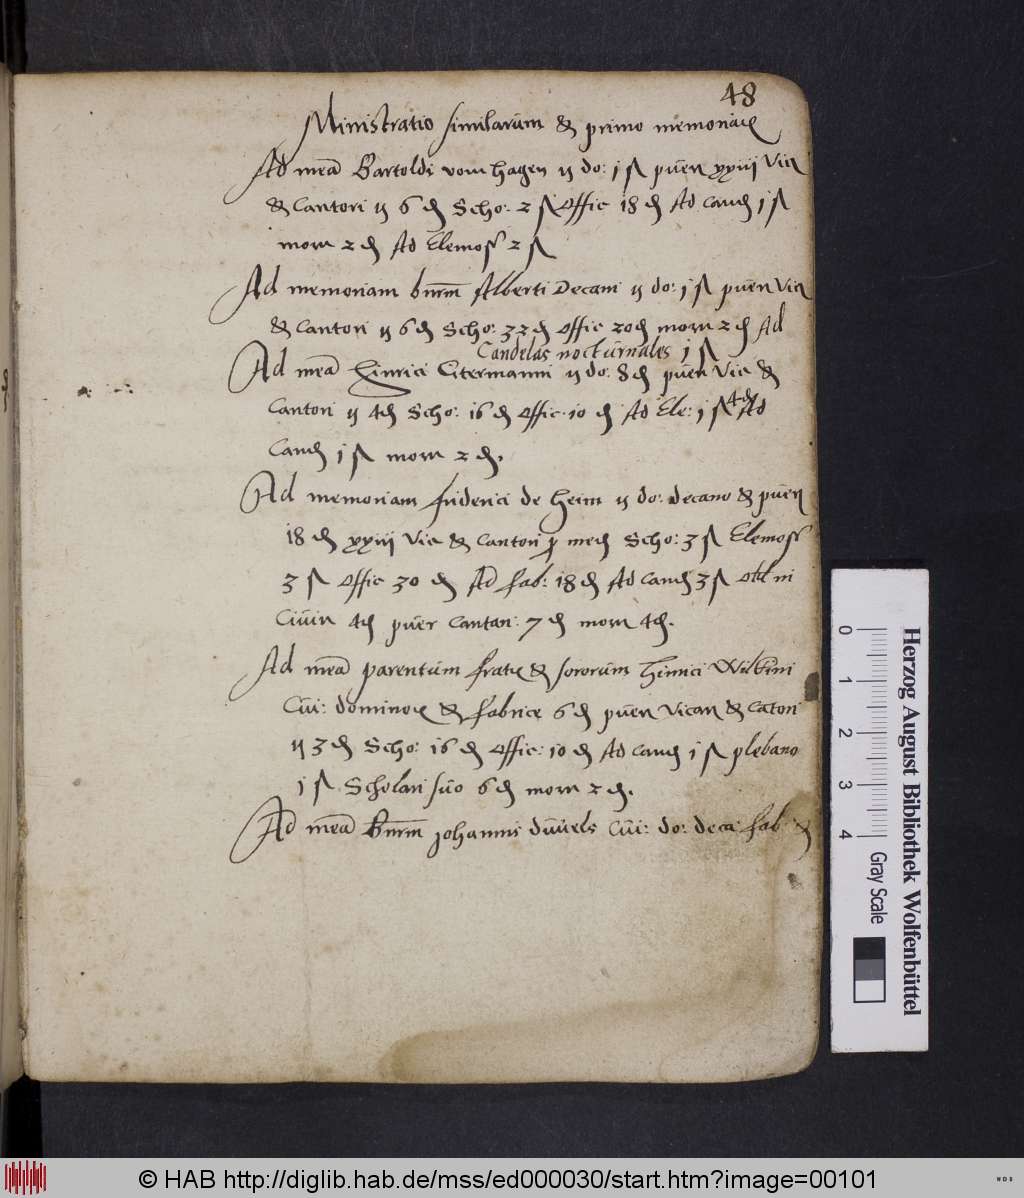 48
Ministratio similarum & primo memoriar
Ad meā Bartoldi vom hagen ij do: j ß puēr xxiiij Vic
& Cantori ij 6 ₰ Scho: 2 ß Offic 18 ₰ Ad Cand j ß
morn 2 ₰ Ad Elemos 2 ß
Ad memoriam Alberti Decani ij do: j ß puēr Vic
& Cantori ij 6 ₰ Scho: 32 ₰ Offic 20 ₰ morn 2 ₰ Ad
Candelas nocturnales j ß
Ad meā Hinrici Citermanni ij do: 8 ₰ puēr Vic &
Cantori ij 4 ₰ Scho: 16 ₰ Offic: 10 ₰ Ad Ele: j ß 4 ₰ Ad
Cand j ß morn 2 ₰.
Ad memoriam friderici de heim ij do: decano & puēr
18 ₰ xxiij Vic & Cantori Scho: 3 ß Elemos
3 ß Offic 30 ₰ Ad fab: 18 ₰ Ad Cand 3 ß
4 ₰ puēr Cantan: 7 ₰ morn 4 ₰.
Ad meā parentum fratr & sororum Hinrici Wilkini
Cui: dominor & fabrice 6 ₰ puēr Vicar & Cātori
ij 3 ₰ Scho: 16 ₰ Offic: 10 ₰ Ad Cand j ß plebano
j ß Scholari suo 6 ₰ morn 2 ₰.
Ad meā johannis duvels Cui: do: deca: fab &
0 1 2 3 4
Herzog August Bibliothek Wolfenbüttel
Gray Scale
© HAB http://diglib.hab.de/mss/ed000030/start.htm?image=00101